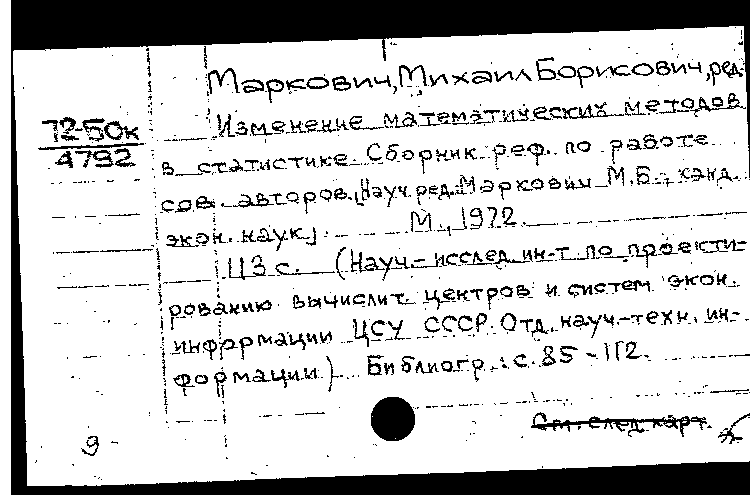 Маркович, Михаил Борисович, ред.
72-50к
4792
Изменение математических методов
в статистике. Сборник реф. по работе
сов. авторов. [Науч. ред. Маркович М.Б., канд.
экон. наук]. М., 1972.
113 с. (Науч.-исслед. ин-т по проекти-
рованию вычислит. центров и систем экон.
информации ЦСУ СССР. Отд. науч.-техн. ин-
формации). Библиогр.: с. 85-112.
См. след. карт.
9